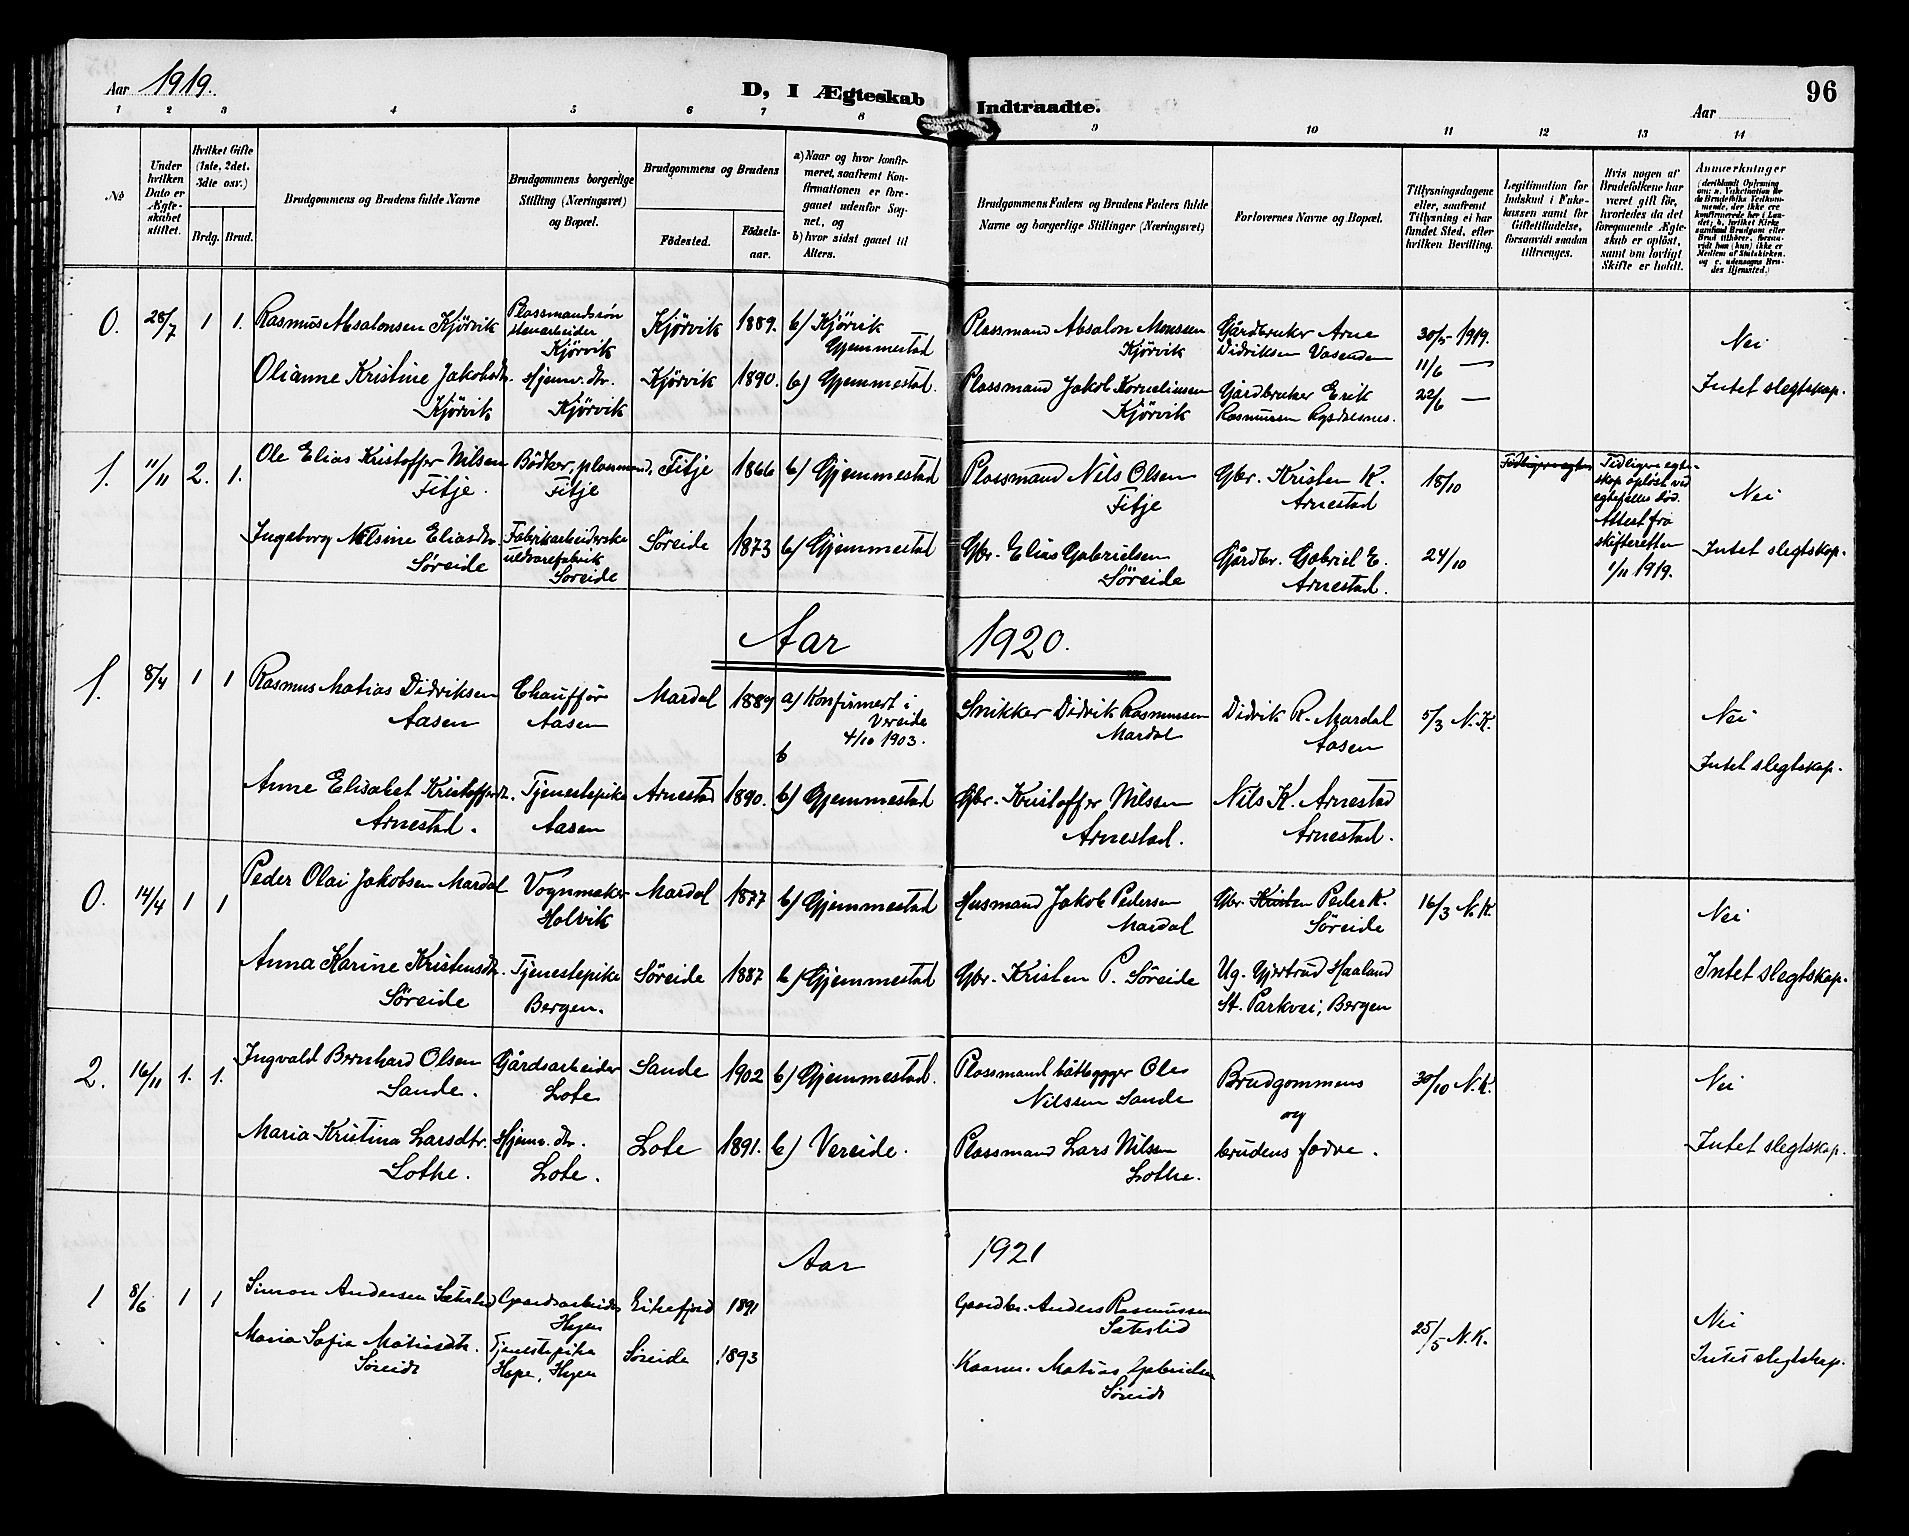 Aar 1919.
D, I Ægteskab Indtraadte.
96
Aar
1 2 3 4 5 6 7 8 9 10 11 12 13 14
No
Under hvilken Dato er Ægteskabet stiftet.
Hvilket Gifte (1ste, 2det. 3die osv.)
Brdg. Brud.
Brudgommens og Brudens fulde Navne
Brudgommens borgerlige Stilling (Næringsvei) og Bopæl.
Brudgommens og Brudens
Fødested. Fødselsaar.
a) Naar og hvor konfirmeret, saafremt Konfirmationen er foregaaet udenfor Sognet, og
b) hvor sidst gaaet til Alters.
Brudgommens Faders og Brudens Faders fulde Navne og borgerlige Stillinger (Næringsvei)
Forlovernes Navne og Bopæl.
Tillysningsdagene eller, saafremt Tillysning ei har fundet Sted, efter hvilken Bevilling.
Legitimation for Indskud i Enkekassen samt for Giftetilladelse, forsaavidt saadan tiltrænges.
Hvis nogen af Brudefolkene har været gift før, hvorledes da det foregaaende Ægteskab er opløst, samt om lovligt Skifte er holdt.
Anmærkninger
0. 28/7 1 1. Rasmus Absalonsen Kjörvik
Plassmandssön stenarbeider Kjörvik
Kjörvik 1889. b) Kjörvik Gjemmestad
Plassmand Absalon Monssen Kjörvik
Gårdbruker Arne Didriksen Vasenden
30/5 1919.
11/6 —
22/6 —
Nei
Olianne Kristine Jakobsdtr. Kjörvik
Hjemv. dtr. Kjörvik
Kjörvik 1890. b) Gjemmestad.
Plassmand Jakob Korneliussen Kjörvik
Gårdbruker Erik Rasmussen Rygdalsnes.
Intet slegtskap.
1. 11/11 2. 1. Ole Elias Kristoffer Nilsen Fitje.
Bödker, plassmand, Fitje
Fitje 1866 b) Gjemmestad
Plassmand Nils Olsen Fitje
Gbr. Kristen K. Arnestad
18/10
Tidligere egtes
Tidligere egteskap oplöst ved egtefelles död. Attest fra skifteretten 1/11 1919.
Nei
Ingeborg Nilsine Eliasdtr. Söreide
Fabrikarbeiderske uldvarefabrik Soreide
Söreide 1873 b) Gjemmestad
Gbr. Elias Gabrielsen Söreide
Gårdbr. Gabriel E. Arnestad.
24/10
Intet slegtskap.
Aar 1920.
1. 8/4 1 1 Rasmus Matias Didriksen Aasen
Chaufför Aasen
Mardal 1889 a) Konfirmert i Vereide 4/10 1903.
b
Snikker Didrik Rasmussen Mardal
Didrik R. Mardal Aasen
5/3 N.K.
Nei
Intet slegtskap.
Anne Elisabet Kristoffersdt. Arnestad.
Tjenestepike Aasen
Arnestad 1890. b) Gjemmestad
Gbr. Kristoffer Nilssen Arnestad.
Nils K. Arnestad Arnestad.
0. 14/4 1 1 Peder Olai Jakobsen Mardal
Vognmaker Holvik
Mardal 1877 b) Gjemmestad
Husmand Jakob Pedersen Mardal
Gbr. Kristen Peder K. Söreide
16/3 N.K.
Nei
Anna Karine Kristensdtr. Söreide
Tjenestepike Bergen.
Söreide 1887 b) Gjemmestad
Gbr. Kristen P. Söreide
Ug. Gjertrud Haaland St. Parkvei, Bergen
Intet slegtskap.
2. 16/11 1. 1. Ingvald Bernhard Olsen Sande.
Gårdsarbeider Lote
Sande 1902 b) Gjemmestad.
Plassmand båtbygger Ole Nilssen Sande
Brudgommens og brudens fædre.
30/10 N.K.
Nei
Maria Kristina Larsdtr. Lothe.
Hjemv. dtr. Lote.
Lote 1891. b) Vereide.
Plassmand Lars Nilsen Lothe.
Intet slegtskap.
Aar 1921
1 8/6 1 1 Simon Andersen Sætelid
Gaardsarbeider Hyen
Eikefjord 1891
Gaardbr. Anders Rasmussen Sætelid
25/5 N.K.
Nei
Maria Sofie Matiasdtr. Söreide
Tjenestepike Hope, Hyen
Söreide 1893
Kaarm. Matias Gabrielsen Söreide
Intet slegtskap.